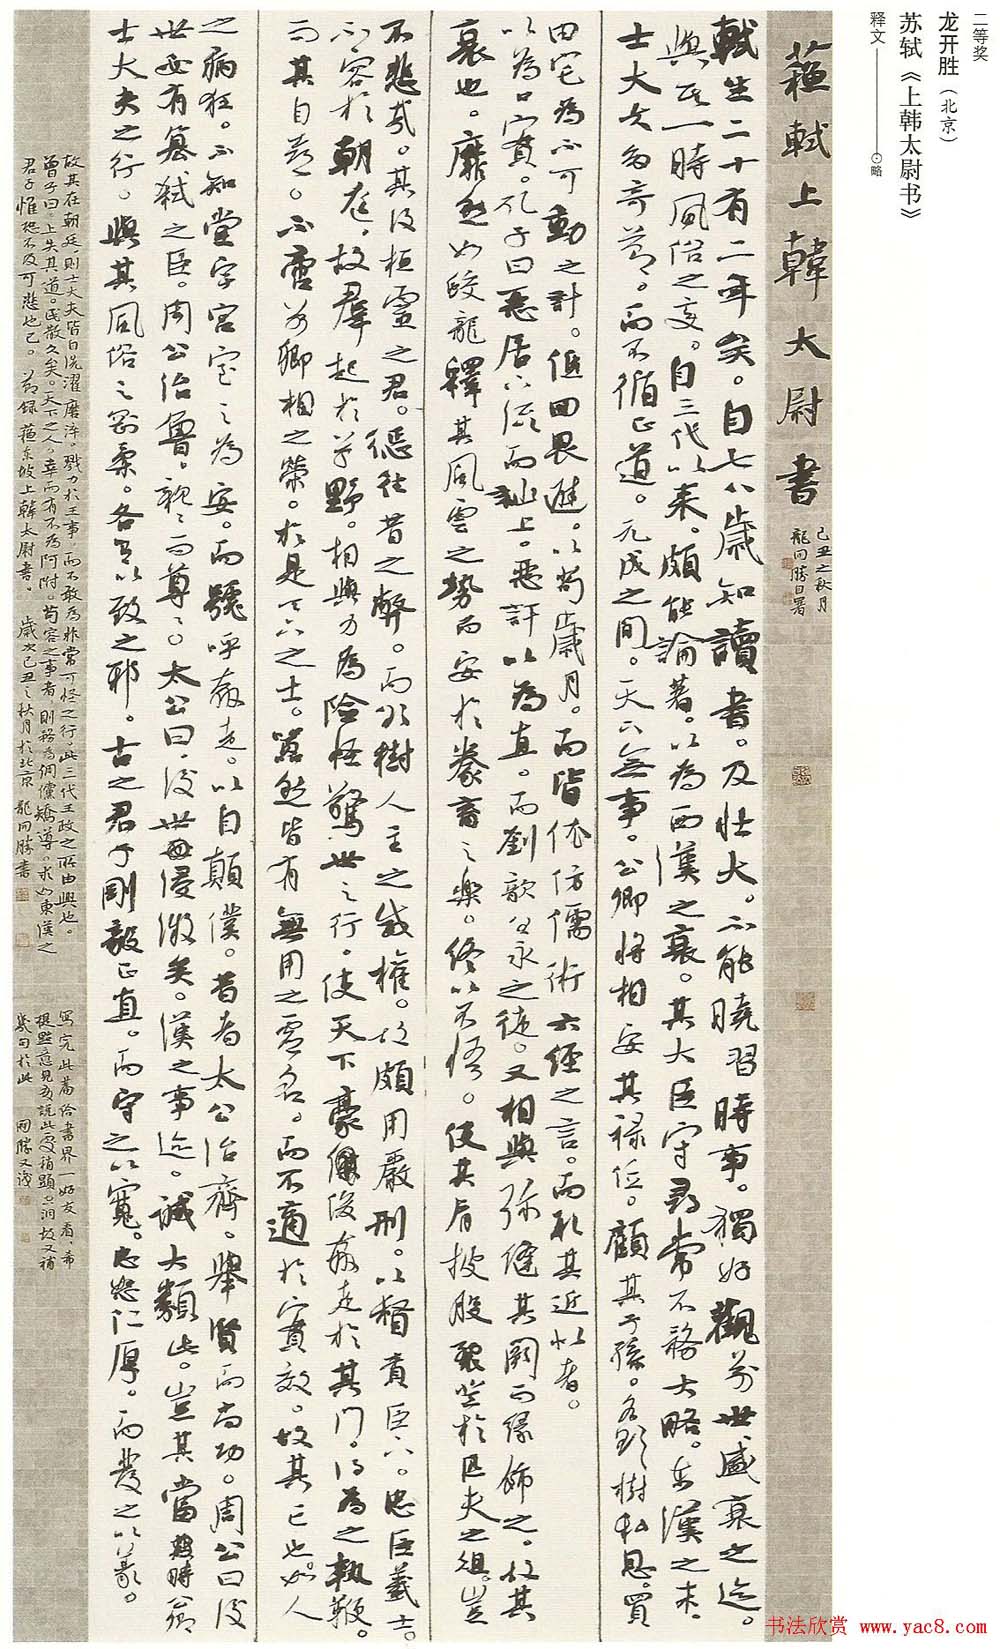 二等奖
龙开胜（北京）
苏轼《上韩太尉书》
释文——⊙略
蘇軾上韓太尉書
己丑之秋月
龍開勝自署
軾生二十有二年矣。自七八歲知讀書。及壯大。不能曉習時事。獨好觀前世盛衰之迹。
與其一時風俗之變。自三代以來。頗能論著。以為西漢之衰。其大臣守尋常不務大略。東漢之末。
士大夫多奇節。而不循正道。元成之間。天下無事。公卿將相安其祿位。顧其子孫。各欲樹私恩。買
田宅為不可動之計。低回畏避。以苟歲月。而皆依仿儒術六經之言。而取其近似者。
以為口實。孔子曰惡居下流而訕上。惡訐以為直。而劉歆谷永之徒。又相與弥縫其闕而緣飾之。故其
衰也。靡然如蛟龍釋其風雲之勢而安於豢畜之樂。終以不悟。使其肩披股裂登於匹夫之俎。豈
不悲哉。其後桓靈之君。懲往昔之弊。而欲樹人主之威權。故頗用嚴刑。以督責臣下。忠臣義士。
不容於朝廷。故群起於草野。相與力為險怪驚世之行。使天下豪俊奔走於其門。得為之執鞭。
而其自喜。不啻若卿相之榮。於是天下之士。囂然皆有無用之虛名。而不適於實效。故其亡也。如人
之病狂。不知堂宇宮室之為安。而號呼奔走。以自顛僕。昔者太公治齊。舉賢而尚功。周公曰後
世必有篡弒之臣。周公治魯。親親而尊尊。太公曰。後世浸微矣。漢之事迹。誠大類此。豈其當時公卿
士大夫之行。與其風俗之剛柔。各有以致之邪。古之君子剛毅正直。而守之以寬。忠恕仁厚。而發之以義。
故其在朝廷。則士大夫皆自洗濯磨淬。戮力於王事。而不敢為非常可怪之行。此三代王政之所由興也。
曾子曰。上失其道。民散久矣。天下之人。幸而有不為阿附。苟容之事者。則務為倜儻矯導。求如東漢之
君子惟恐不及可悲也已。節錄蘇東坡上韓太尉書。歲次己丑之秋月於北京龍開勝書
寫完此篇給書界一好友看。希
提點意見友說此處稍顯空洞故又補
幾句於此 開勝又識
书法欣赏 www.yac8.com